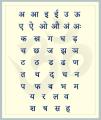 अ आ इ ई उ ऊ
ए ऐ ओ औ अं अः
क ख ग घ ङ
च छ ज झ ञ
ट ठ ड ढ ण
त थ द ध न
प फ ब भ म
य र ल व
श ष स ह